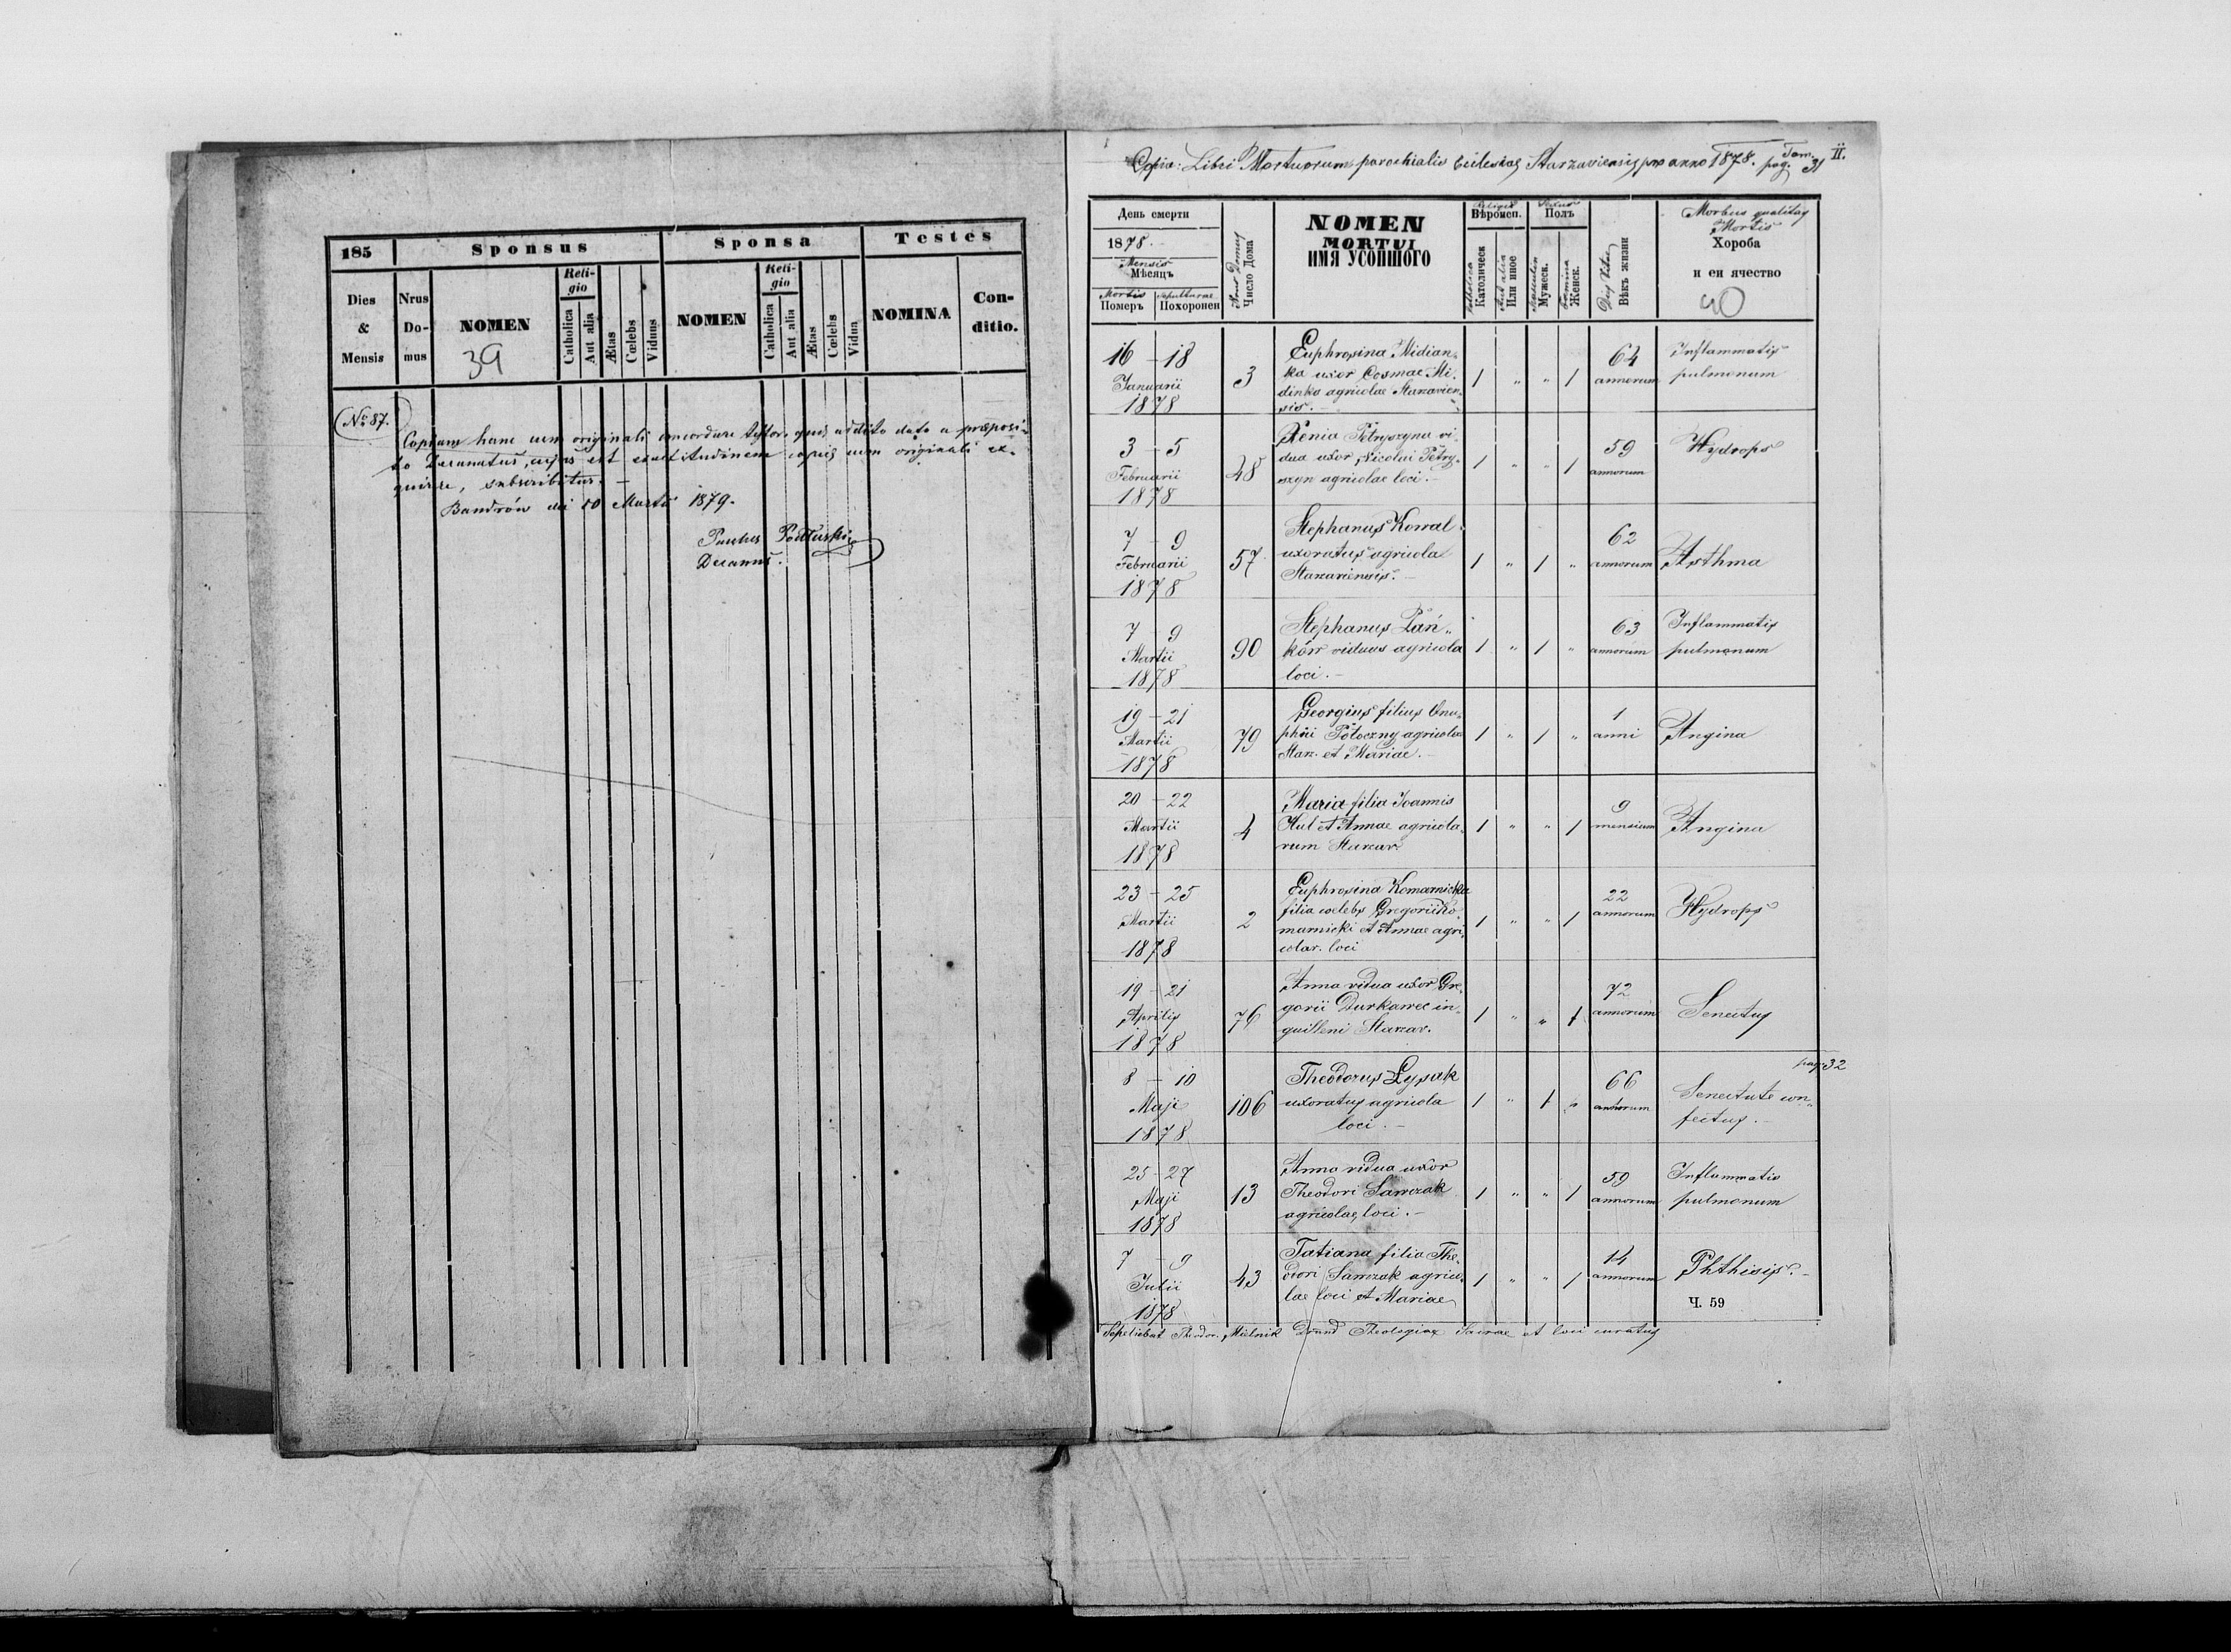 185
Sponsus
Sponsa
Testes
Dies & Mensis
Nrus Domus
NOMEN
Religio
Catholica
Aut alia
Ætas
Cœlebs
Viduus
NOMEN
Religio
Catholica
Aut alia
Ætas
Cœlebs
Vidua
NOMINA
Conditio.
39
No 87.
Copiam hanc cum originali concordare testor, quod addito dato a praeposi-
to Decanatus, cujus est exactitudinem copiae cum originali ex-
quirere, subscribitur. –
Bandrów die 10 Martii 1879.
Decanus.
Copia: Libri Mortuorum parochialis Ecclesiae Starzaviensis pro anno 1878. Tom. II.
pag. 31
День смерти
1878.
Mensis
Мѣсяцъ
Mortis
Померъ
sepulturae
Похоронен
Число Дома
NOMEN
MORTUI
ИМЯ УСОПШОГО
Religio
Вѣроисп.
Catholica
Католическ
Aut alia
Или иное
Sexus
Полъ
Мужеск.
Женск.
Dies Vitae
Вѣкъ жизни
Morbus qualitas
Mortis
Хороба
и еи ячество
40
16 – 18
Januarii
1878
3
Euphrosina Midian-
ka uxor Cosmae Mi-
dinka agricolae Starzavien-
sis. –
1 " " 1
64
annorum
Inflammatis
pulmonum
3 – 5
Februarii
1878
48
Xenia Petryszyna vi-
dua uxor Nicolai Petry-
szyn agricolae loci. –
1 " " 1
59
annorum
Hydrops
7 – 9
Februarii
1878
57
Stephanus Kowal
uxoratus agricola
Starzaviensis. –
1 " 1 "
62
annorum
Asthma
7 – 9
Martii
1878
90
Stephanus Pań-
ków viduus agricola
loci. –
1 " 1 "
63
annorum
Inflammatis
pulmonum
19 – 21
Martii
1878
79
Georgius filius Onu-
phrii Potoczny agricolae
Starz. et Mariae.
1 " 1 "
1
anni
Angina
20 – 22
Martii
1878
4
Maria filia Joannis
Hul et Annae agricola-
rum Starzav.
1 " " 1
9
mensium
Angina
23 – 25
Martii
1878
2
Euphrosina Komarnicka
filia coelebs Gregorii Ko-
marnicki et Annae agri-
colar. loci
1 " " 1
22
annorum
Hydrops
19 – 21
Aprilis
1878
76
Anna vidua uxor Gre-
gorii Durkawec in-
quilleni Starzav.
1 " " 1
72
annorum
Senectus
pag. 32
8 – 10
Maji
1878
106
Theodorus Lysak
uxoratus agricola
loci. –
1 " 1 "
66
annorum
Senectute con-
fectus. –
25 – 27
Maji
1878
13
Anna vidua uxor
Theodori Sawczak
agricolae loci. –
1 " " 1
59
annorum
Inflammatio
pulmonum
7 – 9
Julii
1878
43
Tatiana filia The-
odori Sawczak agrico-
lae loci et Mariae
1 " " 1
14
annorum
Phthisis. –
Ч. 59
Sepeliebat Theodor. Mielnik Theologiae Sacrae et loci curatus